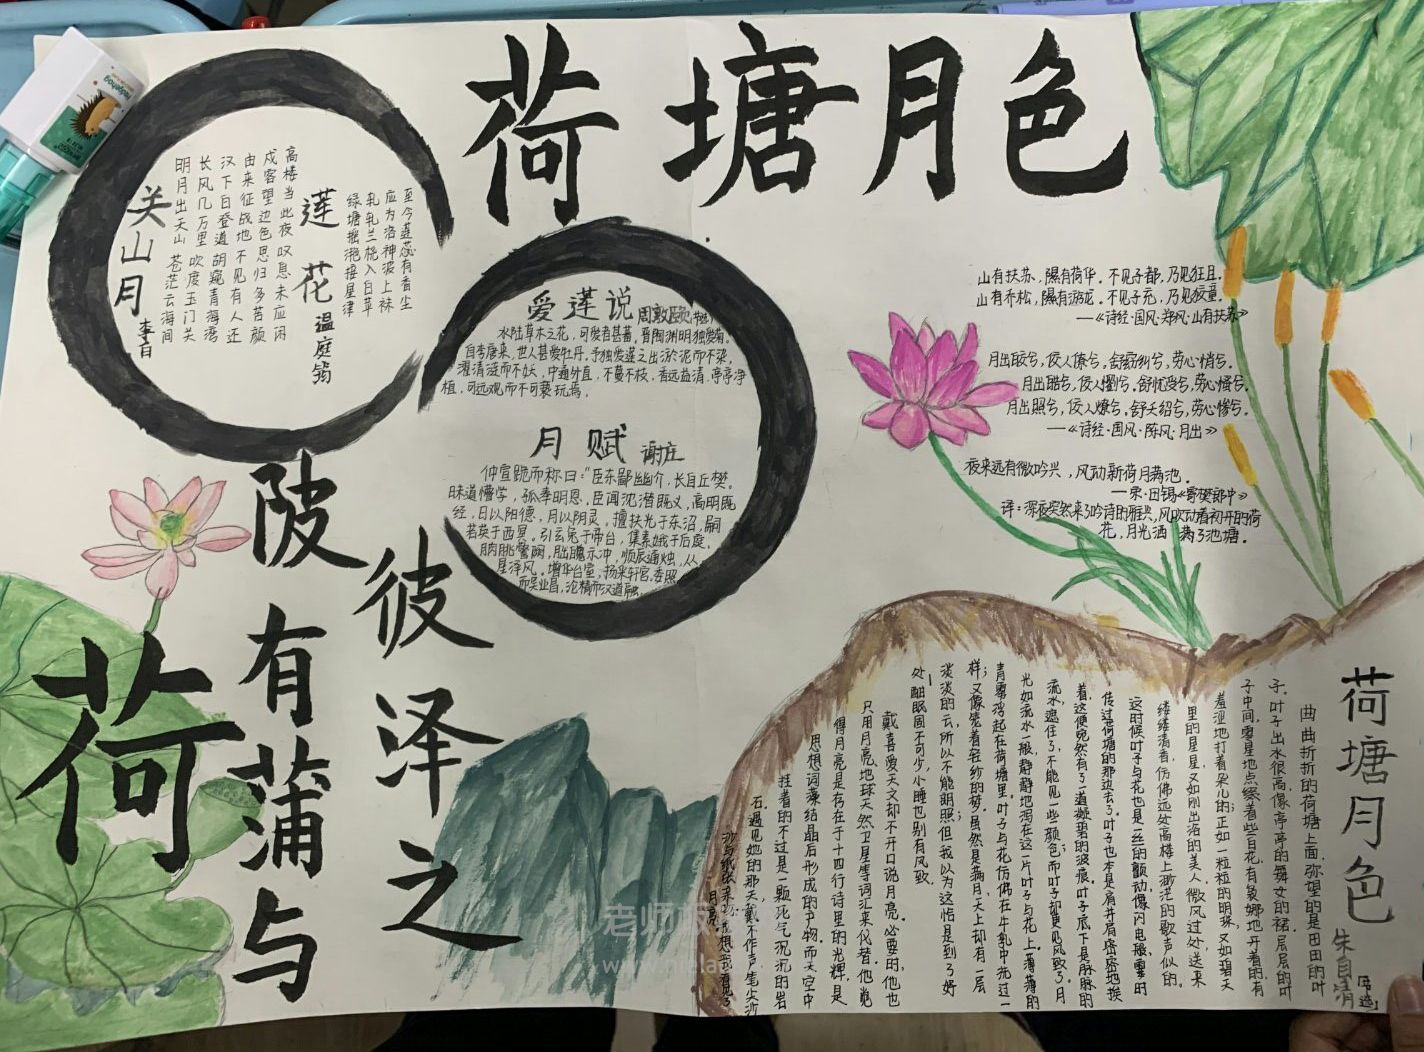 荷塘月色
关山月
李白
明月出天山 苍茫云海间
长风几万里 吹度玉门关
汉下白登道 胡窥青海湾
由来征战地 不见有人还
戍客望边色 思归多苦颜
高楼当此夜 叹息未应闲
莲花
温庭筠
绿塘摇滟接星津
轧轧兰桡入白苹
应为洛神波上袜
至今莲蕊有香尘
爱莲说 周敦颐
水陆草木之花，可爱者甚蕃，晋陶渊明独爱菊。
自李唐来，世人甚爱牡丹，予独爱莲之出淤泥而不染，
濯清涟而不妖，中通外直，不蔓不枝，香远益清，亭亭净
植，可远观而不可亵玩焉。
月赋 谢庄
仲宣跪而称曰："臣东鄙幽介，长自丘樊。
昧道懵学，孤奉明恩，臣闻沈潜既义，高明既
经，日以阳德，月以阴灵，擅扶光于东沼，嗣
若英于西冥。引玄兔于帝台，集素娥于后庭，
朒朓警阙，朏魄示冲，顺辰通烛，从
星泽风。增华台室，扬采轩宫，委照
而吴业昌，沦精而汉道融。
彼泽之
陂有蒲与
荷
山有扶苏，隰有荷华。不见子都，乃见狂且。
山有乔松，隰有游龙。不见子充，乃见狡童。
——《诗经·国风·郑风·山有扶苏》
月出皎兮，佼人僚兮，舒窈纠兮，劳心悄兮。
月出皓兮，佼人懰兮，舒忧受兮，劳心慅兮。
月出照兮，佼人燎兮，舒夭绍兮，劳心惨兮。
——《诗经·国风·陈风·月出》
夜来远有微吟兴，风动新荷月满池。
——宋·田锡《寄樊郎中》
译：深夜突然来了吟诗的雅兴，风吹动着初开的荷
花，月光洒满了池塘。
荷塘月色
朱自清
[节选]
曲曲折折的荷塘上面，弥望的是田田的叶
子。叶子出水很高，像亭亭的舞女的裙。层层的叶
子中间，零星地点缀着些白花，有袅娜地开着的，有
羞涩地打着朵儿的；正如一粒粒的明珠，又如碧天
里的星星，又如刚出浴的美人。微风过处，送来
缕缕清香，仿佛远处高楼上渺茫的歌声似的。
这时候叶子与花也是一丝的颤动，像闪电般，霎时
传过荷塘的那边去了。叶子也本是肩并肩密密地挨
着，这便宛然有了一道凝碧的波痕。叶子底下是脉脉的
流水，遮住了，不能见一些颜色；而叶子却更见风致了。月
光如流水一般，静静地泻在这一片叶子与花上。薄薄的
青雾浮起在荷塘里。叶子与花仿佛在牛乳中洗过一
样；又像笼着轻纱的梦。虽然是满月，天上却有一层
淡淡的云，所以不能朗照；但我以为这恰是到了好
处——酣眠固不可少，小睡也别有风致。
戴喜爱天文却不开口说月亮。必要时，他也
只用月亮、地球天然卫星等词汇来代替。他觉
得月亮是存在于十四行诗里的光辉，是
思想词藻结晶后形成的产物，而天空中
挂着的不过是一颗死气沉沉的岩
石。遇见她的那天，戴不作声，笔尖沙
月亮。
老师板